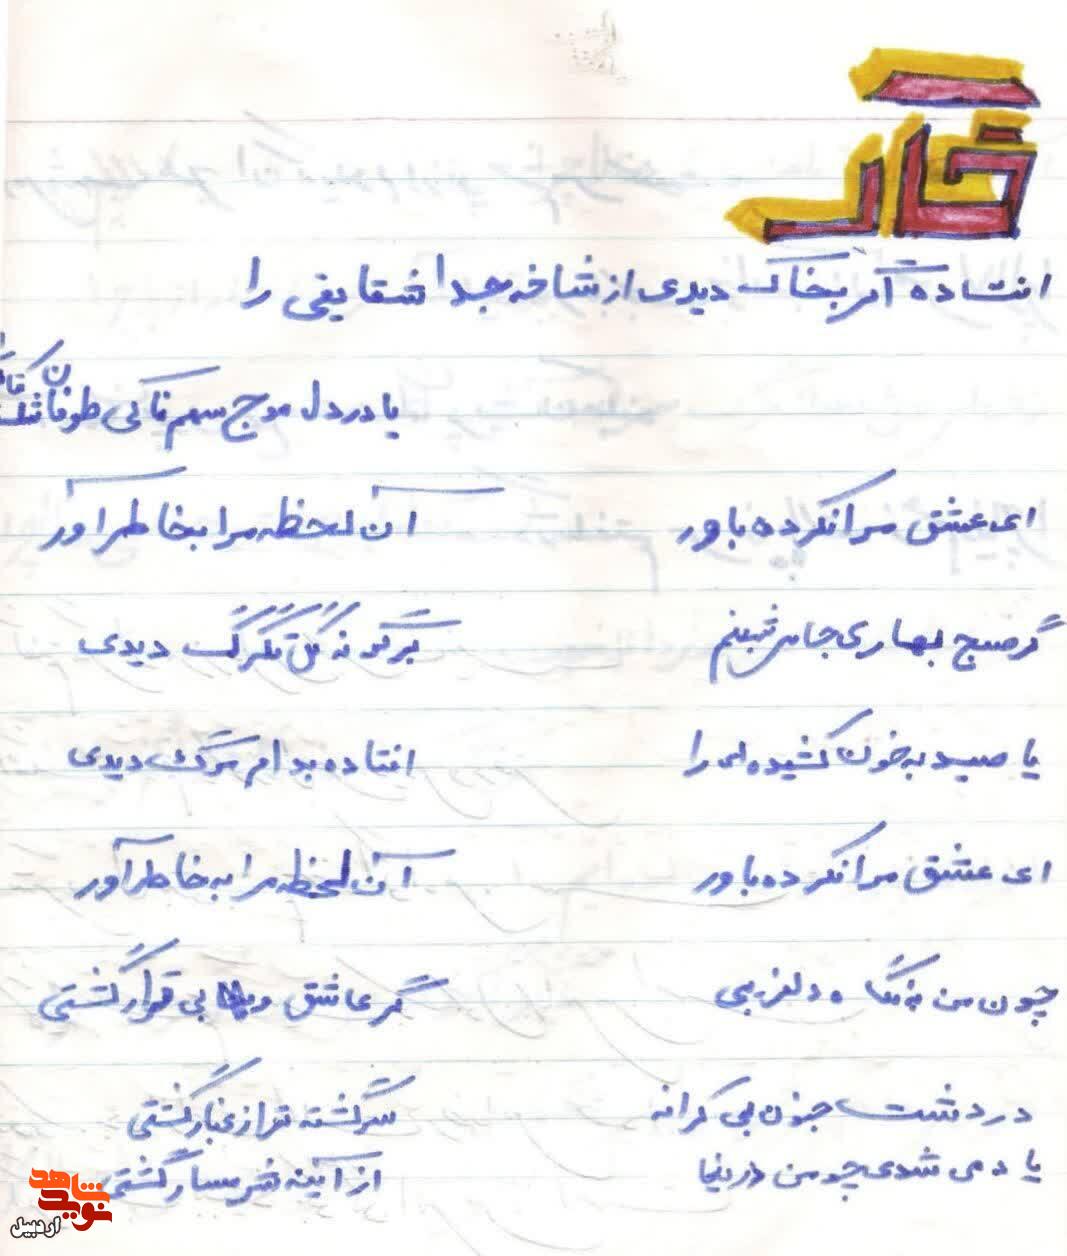 خاک
افتاده اگر بخاک دیدی از شاخه جدا شقایقی را
یا در دل موج سهمناکی طوفان
ای عشق مرا نکرده باور آن لحظه مرا بخاطر آور
گر صبح بهاری جام شبنم بر گونه گل تگرگ دیدی
یا صید به خون کشیده ای را افتاده بدام مرگ دیدی
ای عشق مرا نکرده باور آن لحظه مرا به خاطر آور
چون من به نگاه دلفریبی گر عاشق و بی قرار گشتی
در دشت جنون بی کرانه سرگشته تر از غبار گشتی
یا دمی شدی چو من در آیینه شرمسار گشتی
نوید شاهد
اردبیل